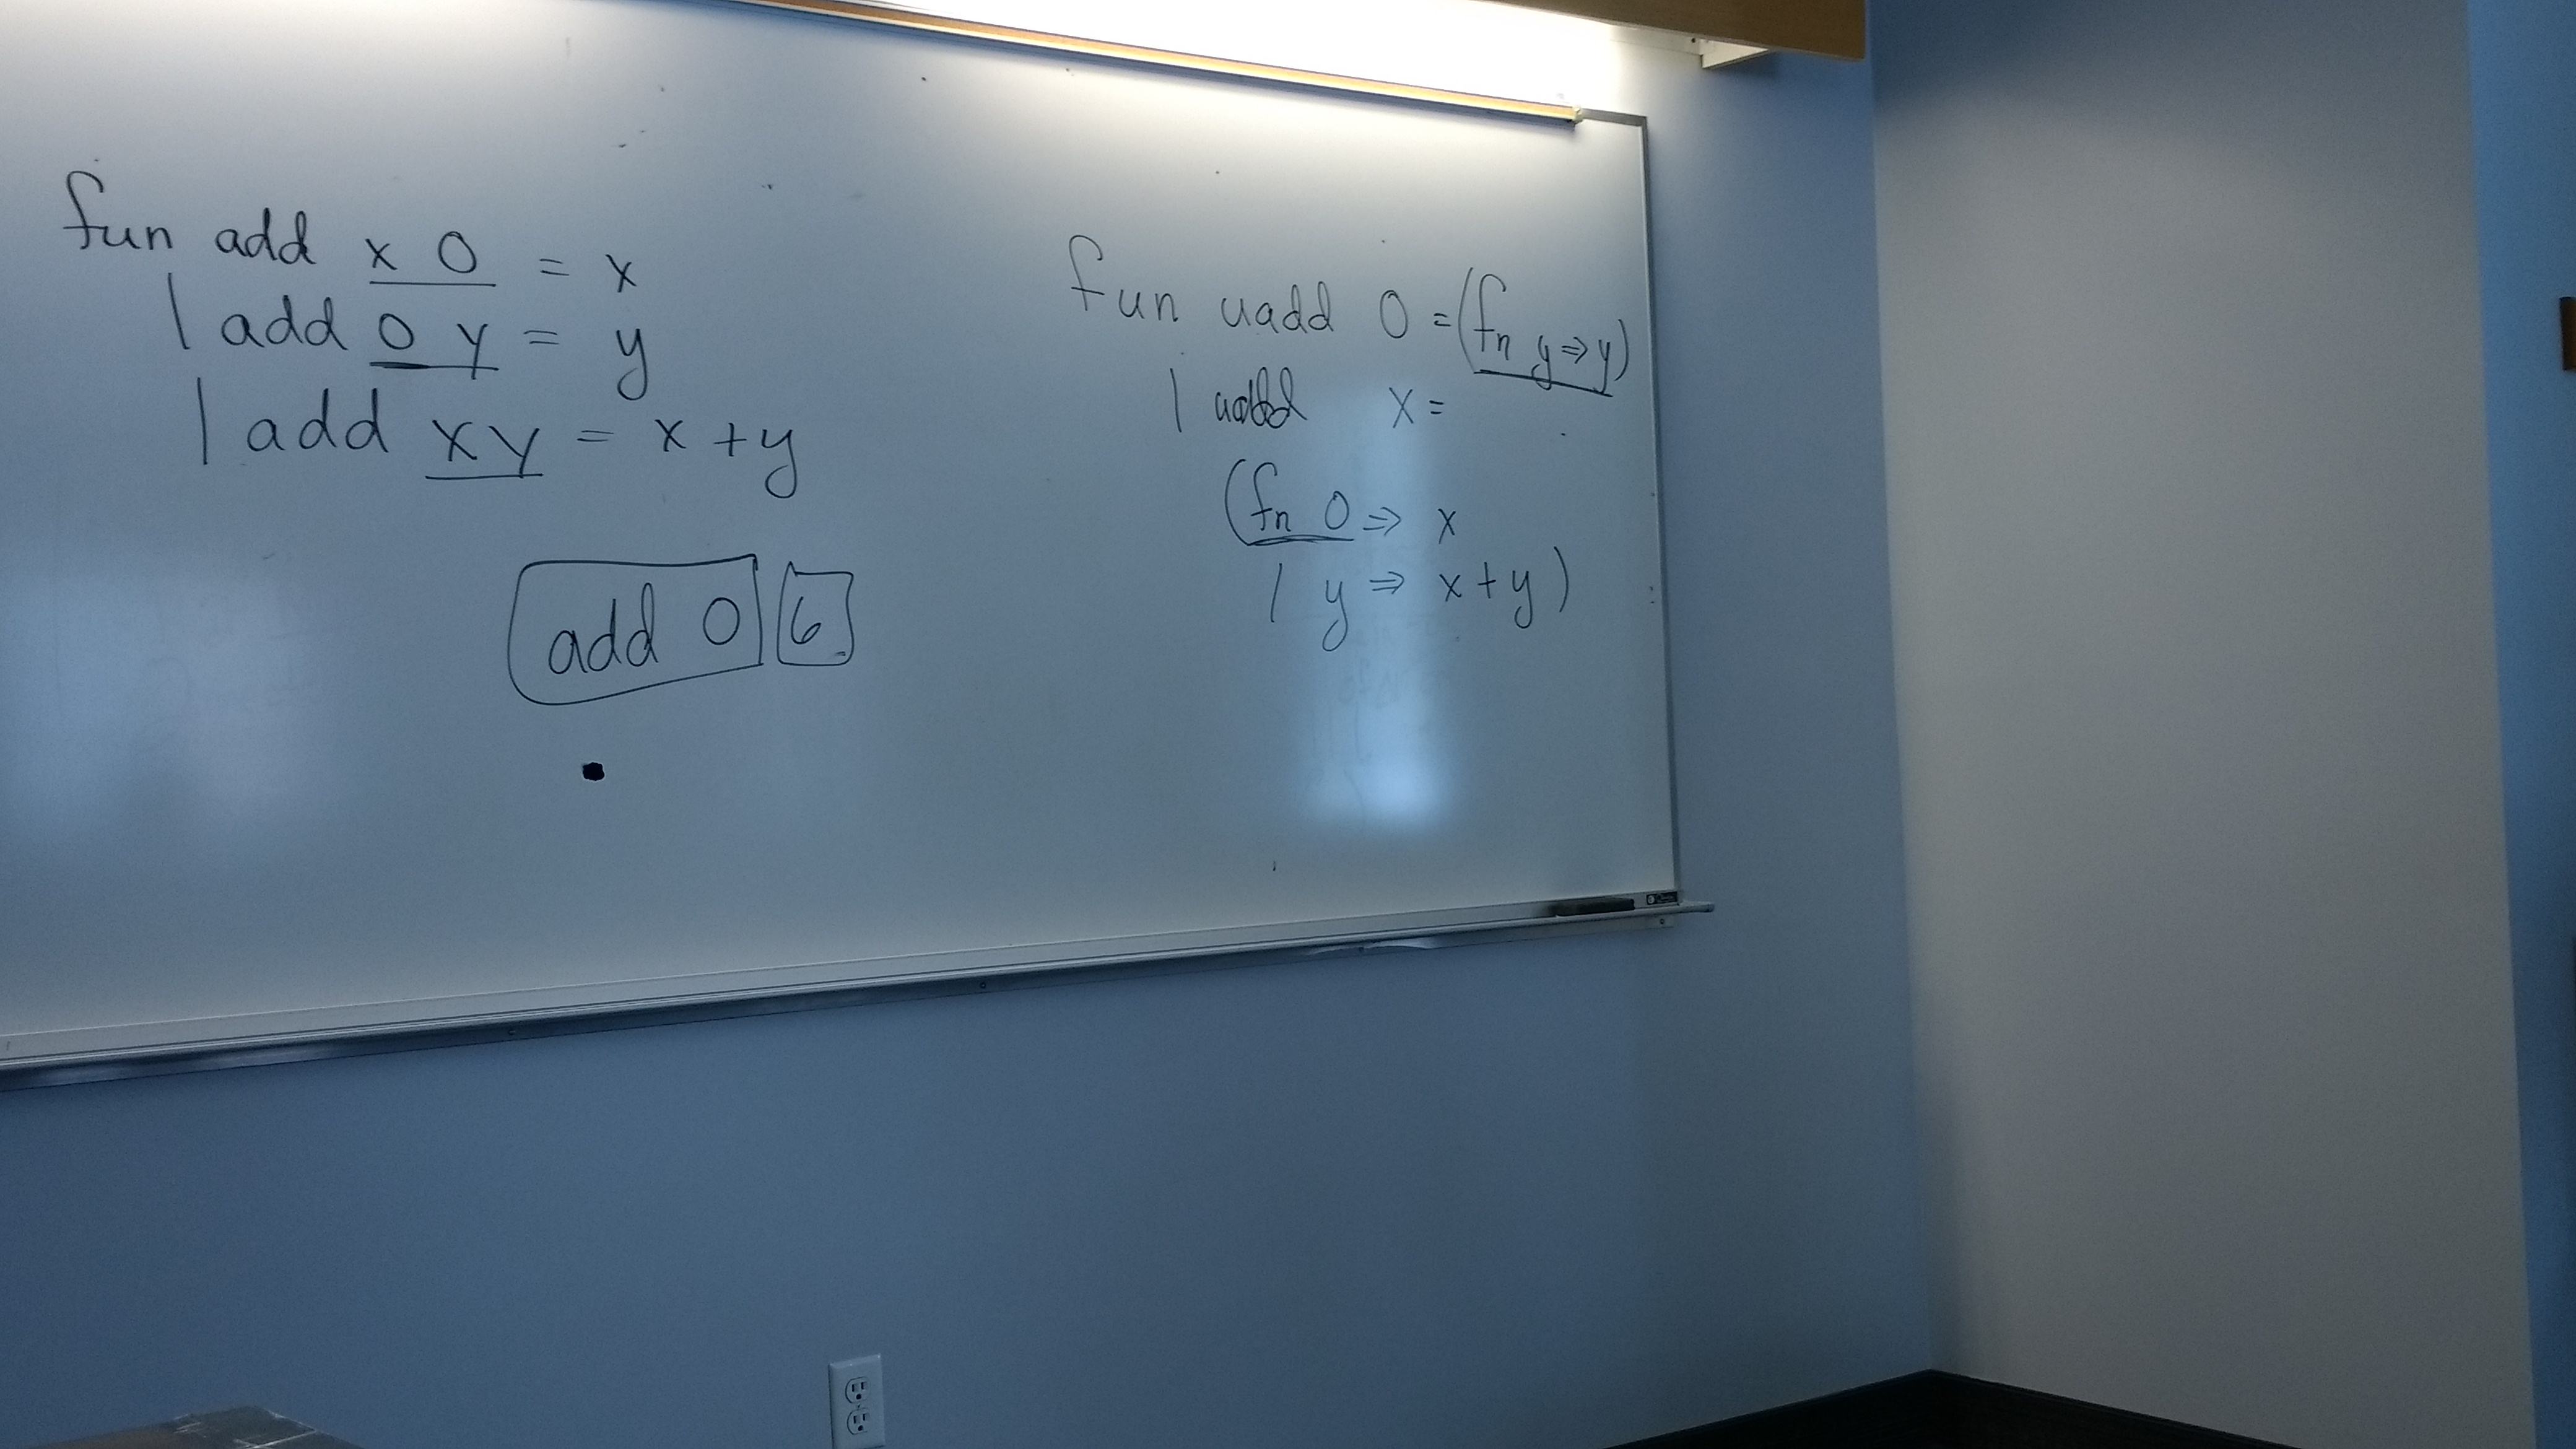 fun add x 0 = x
| add 0 y = y
| add x y = x + y
add 0 6
fun uadd 0 = (fn y ⇒ y)
| uadd x =
(fn 0 ⇒ x
| y ⇒ x + y)